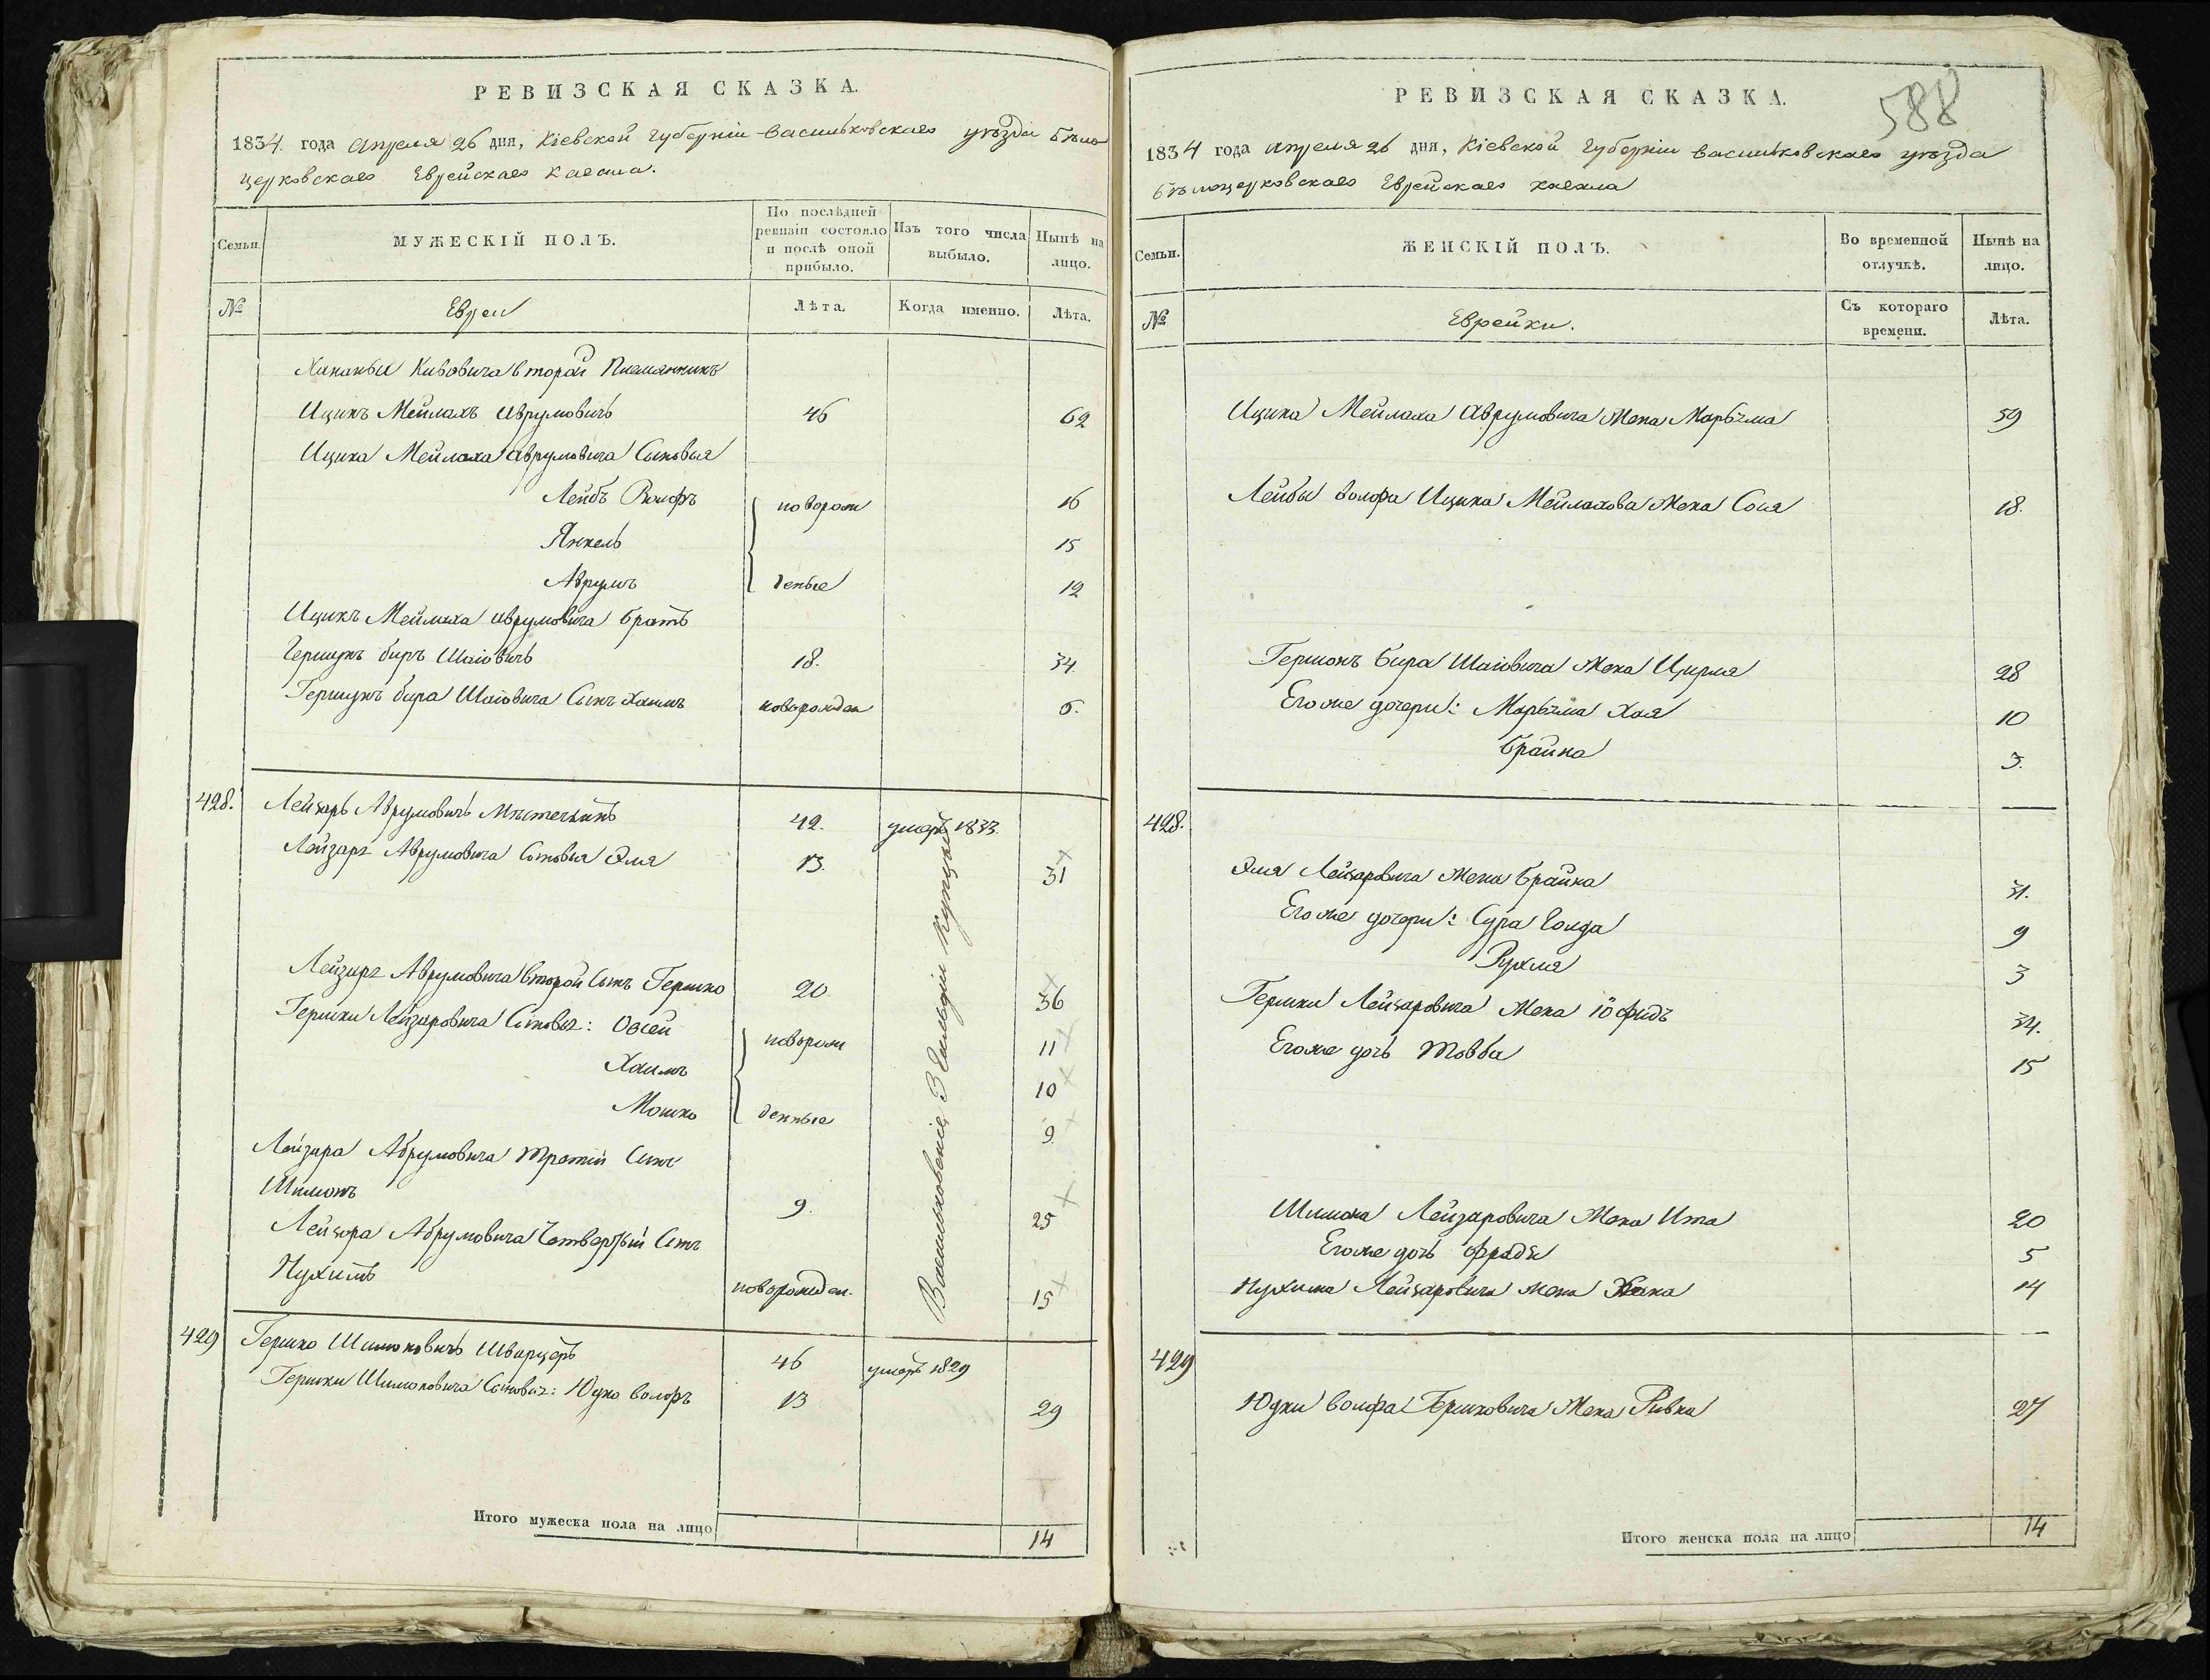 РЕВИЗСКАЯ СКАЗКА.
1834. года Апреля 26 дня, Кіевской губерніи Васильковскаго уѣзда Бѣло
церковскаго Еврейскаго Кагала.
Семьи.
МУЖЕСКІЙ ПОЛЪ.
По послѣдней ревизіи состояло и послѣ оной прибыло.
Изъ того числа выбыло.
Нынѣ на лицо.
№
Евреи
Лѣта.
Когда именно.
Лѣта.
Хананьи Кивовича второй Племянникъ
Ицикъ Мейлахъ Аврумовичъ 46 62
Ицика Мейлаха Аврумовича Сыновья
Лейбъ Волфъ новорож 16
Янкель 15
Аврумъ денные 12
Ицикъ Мейлаха Аврумовича братъ
Гершунъ биръ Шаіовичъ 18. 34
Гершунъ бира Шаіовича Сынъ Хаимъ новорожден 6.
428. Лейзаръ Аврумовичъ Мѣстечкинъ 42. умеръ 1833.
Лейзара Аврумовича Сыновья Эля 13. 31
Лейзара Аврумовича второй Сынъ Гершко 20 36
Гершки Лейзаровича Сыновья: Овсей новорож 11
Хаимъ 10
Мошко денные 9
Лейзара Аврумовича Третій Сынъ
Шимонъ 9. 25
Лейзора Аврумовича Четвертый Сынъ
Нухимъ новорожден. 15
Васильковскіе 3 Гильдіи Купцы
429 Гершко Шимоновичъ Шварцеръ 46 умеръ 1829
Гершки Шимоновича Сыновья: Юдко Волфъ 13 29
Итого мужеска пола на лицо 14
588
РЕВИЗСКАЯ СКАЗКА.
1834 года Апреля 26 дня, Кіевской Губерніи Васильковскаго уѣзда
Бѣлоцерковскаго Еврейскаго кагала
Семьи.
ЖЕНСКІЙ ПОЛЪ.
Во временной отлучкѣ.
Нынѣ на лицо.
№
Еврейки.
Съ котораго времени.
Лѣта.
Ицика Мейлаха Аврумовича Жена Марьяма 59
Лейбы Волфа Ицика Мейлахова Жена Сося 18.
Гершонъ Бира Шаіовича Жена Цирля 28
Его же дочери: Марьяма Хая 10
Брайна 3.
428.
Эля Лейзаровича Жена Брайна 31.
Его же дочери: Сура Голда 9
Рухля 3
Гершки Лейзаровича Жена 34.
Его же дочь Товба 15
Шимона Лейзаровича Жена Ита 20
Его же дочь Фрадя 5
Нухима Лейзаровича Жена Хана 14
429
Юдки Волфа Гершковича Жена Ривка 27
Итого женска пола на лицо 14